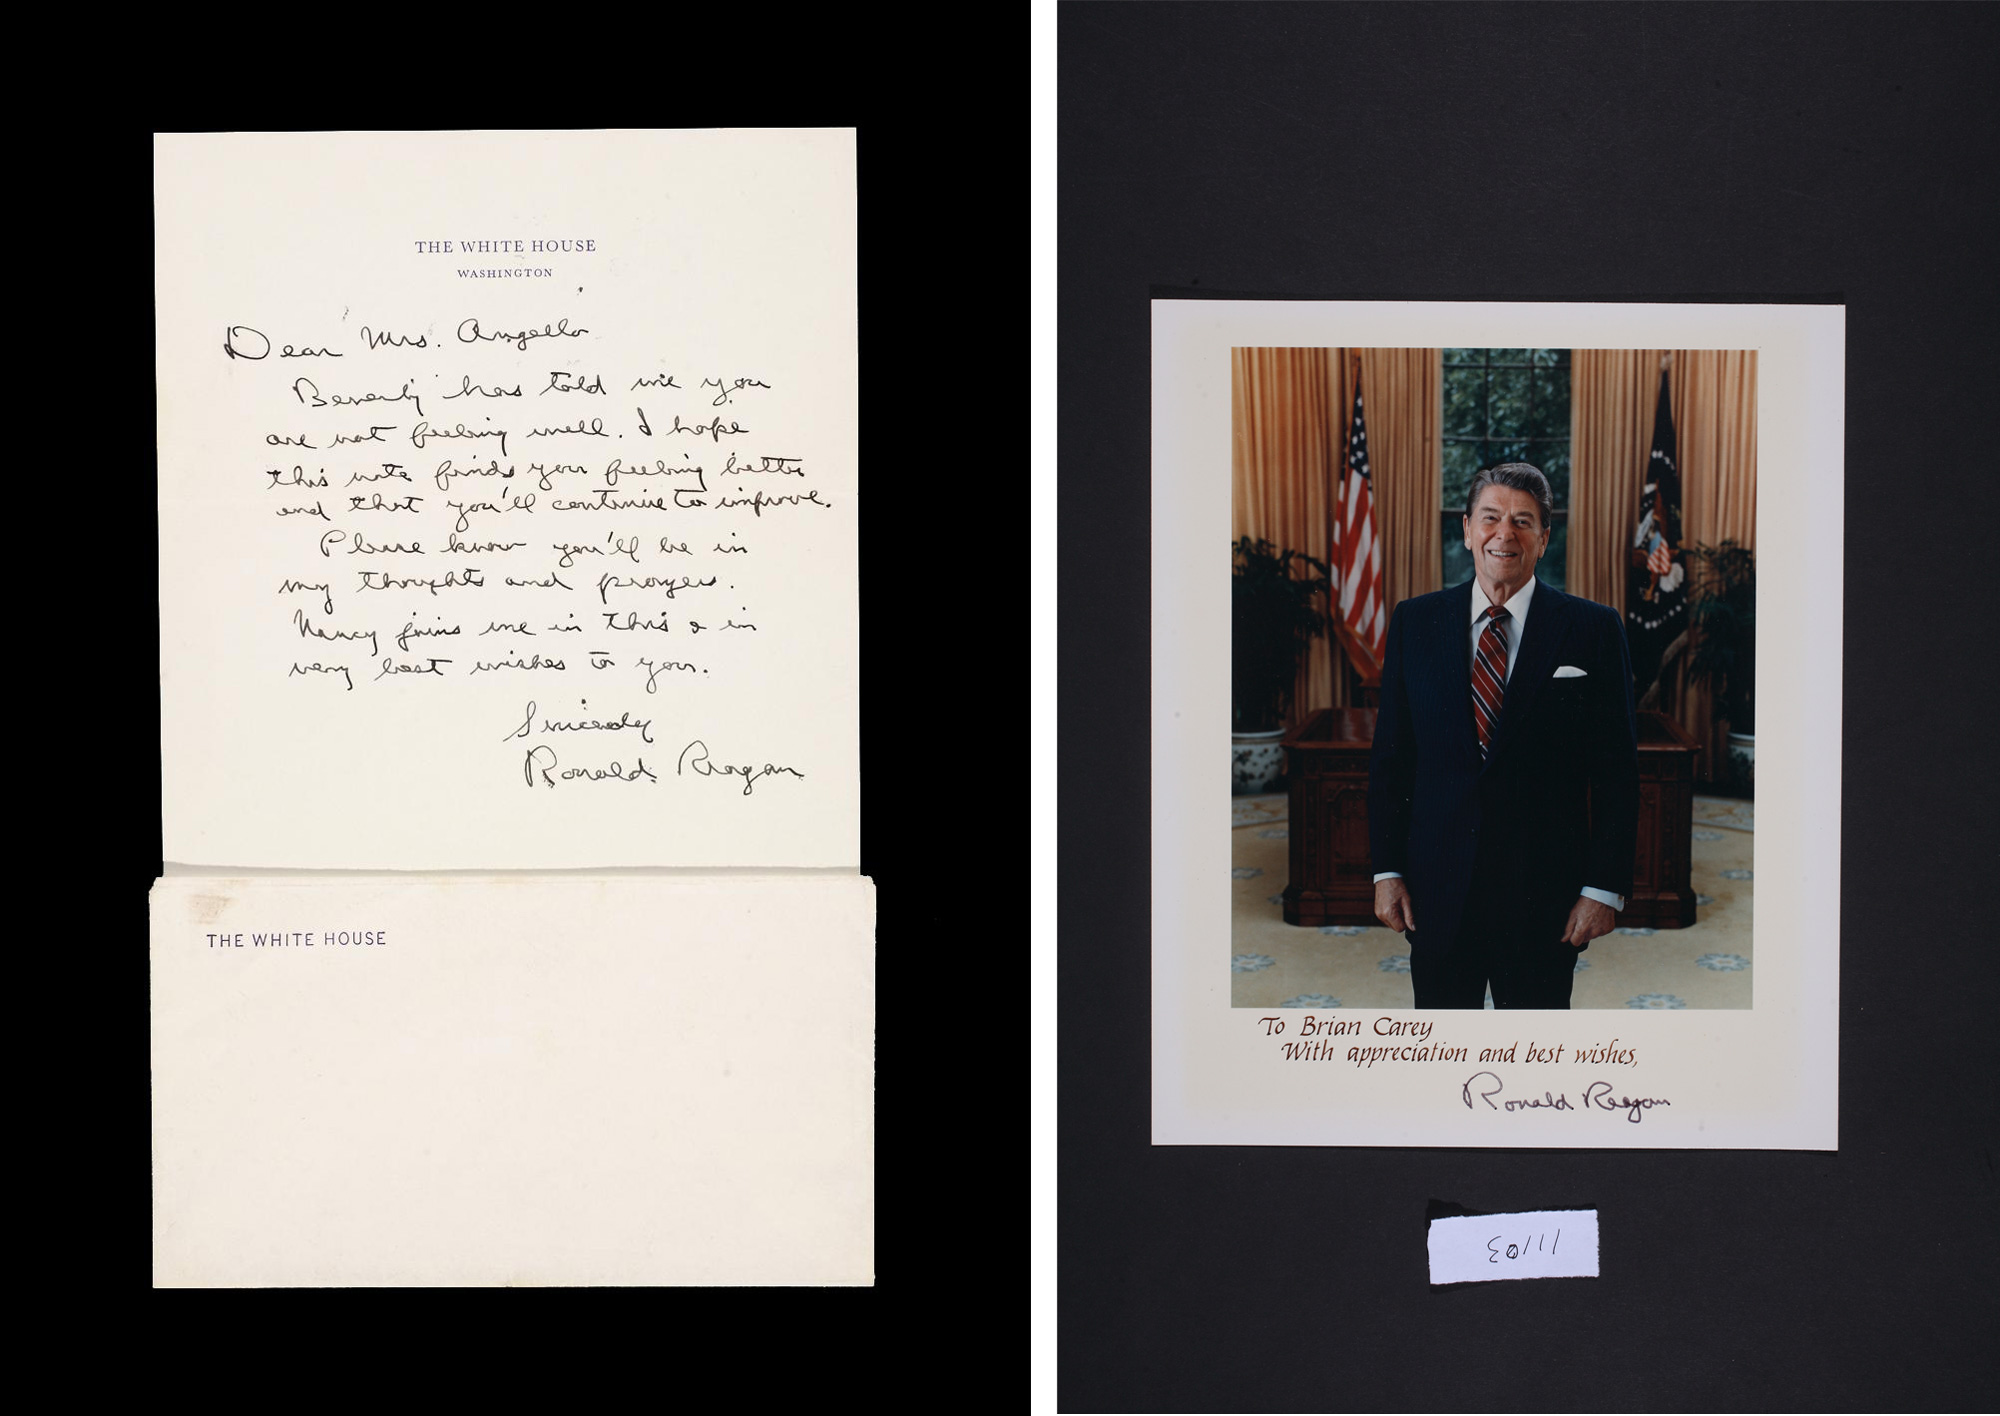 THE WHITE HOUSE
WASHINGTON
Dear Mrs. Angello
Beverly has told me you
are not feeling well. I hope
this note finds you feeling better
and that you'll continue to improve.
Please know you'll be in
my thoughts and prayers.
Nancy joins me in this & in
very best wishes to you.
Sincerely
Ronald Reagan
THE WHITE HOUSE
To Brian Carey
With appreciation and best wishes,
Ronald Reagan
11103